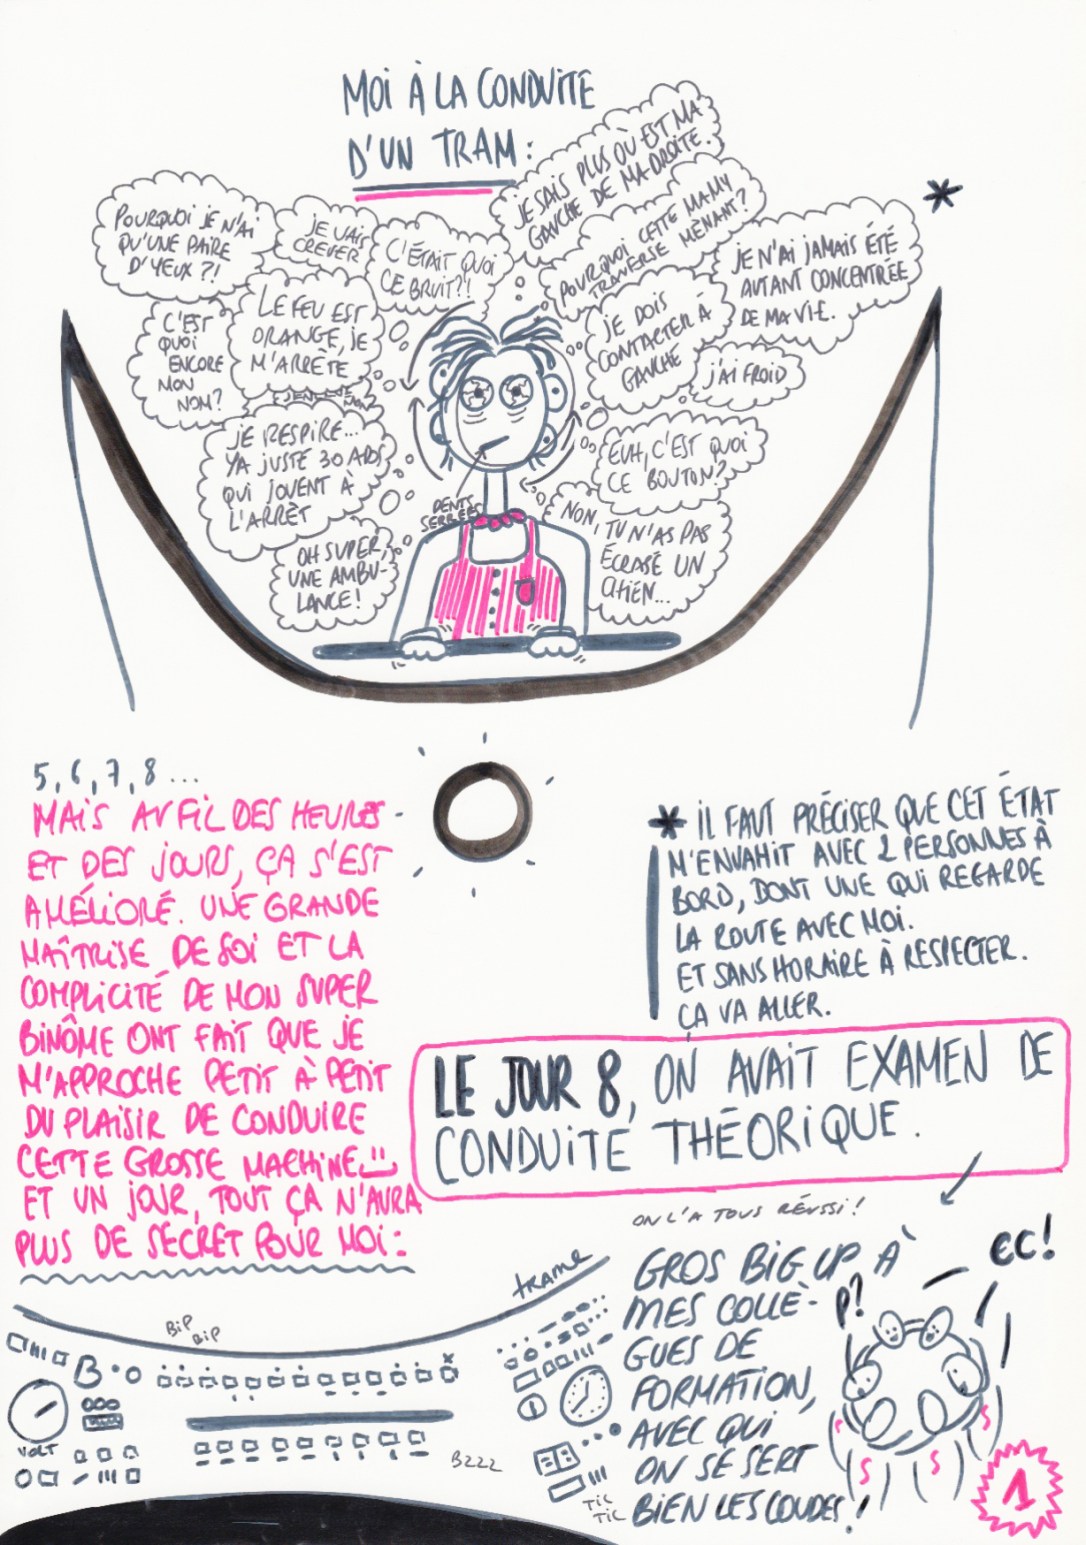 MOI À LA CONDUITE
D'UN TRAM :
JE SAIS PLUS OÙ EST MA
GAUCHE DE MA DROITE.
POURQUOI CETTE MAMY
TRAVERSE MÈNANT?
JE N'AI JAMAIS ÉTÉ
AUTANT CONCENTRÉE
DE MA VIE.
*
POURQUOI JE N'AI
QU'UNE PAIRE
D'YEUX ?!
JE VAIS
CREVER
C'ÉTAIT QUOI
CE BRUIT?!
C'EST
QUOI
ENCORE
MON
NOM?
LE FEU EST
ORANGE, JE
M'ARRÈTE
JE DOIS
CONTACTER À
GAUCHE
J'AI FROID
JE RESPIRE...
YA JUSTE 30 ADOS
QUI JOUENT À
L'ARRÈT
EUH, C'EST QUOI
CE BOUTON?
DENTS
SERRÉES
OH SUPER,
UNE AMBU-
LANCE!
NON, TU N'AS PAS
ÉCRASÉ UN
CHIEN...
5, 6, 7, 8 ...
MAIS AU FIL DES HEURES
ET DES JOURS, ÇA S'EST
AMÉLIORÉ. UNE GRANDE
MAÎTRISE DE SOI ET LA
COMPLICITÉ DE MON SUPER
BINÔME ONT FAIT QUE JE
M'APPROCHE PETIT À PETIT
DU PLAISIR DE CONDUIRE
CETTE GROSSE MACHINE
ET UN JOUR, TOUT ÇA N'AURA
PLUS DE SECRET POUR MOI :
* IL FAUT PRÉCISER QUE CET ÉTAT
M'ENVAHIT AVEC 2 PERSONNES À
BORD, DONT UNE QUI REGARDE
LA ROUTE AVEC MOI.
ET SANS HORAIRE À RESPECTER.
ÇA VA ALLER.
LE JOUR 8, ON AVAIT EXAMEN DE
CONDUITE THÉORIQUE.
ON L'A TOUS RÉUSSI!
GROS BIG UP À
MES COLLÈ-
GUES DE
FORMATION,
AVEC QUI
ON SE SERT
BIEN LES COUDES!
P?
EC!
S
S
S
1
BIP
BIP
trame
B
VOLT
BZZZ
TIC
TIC